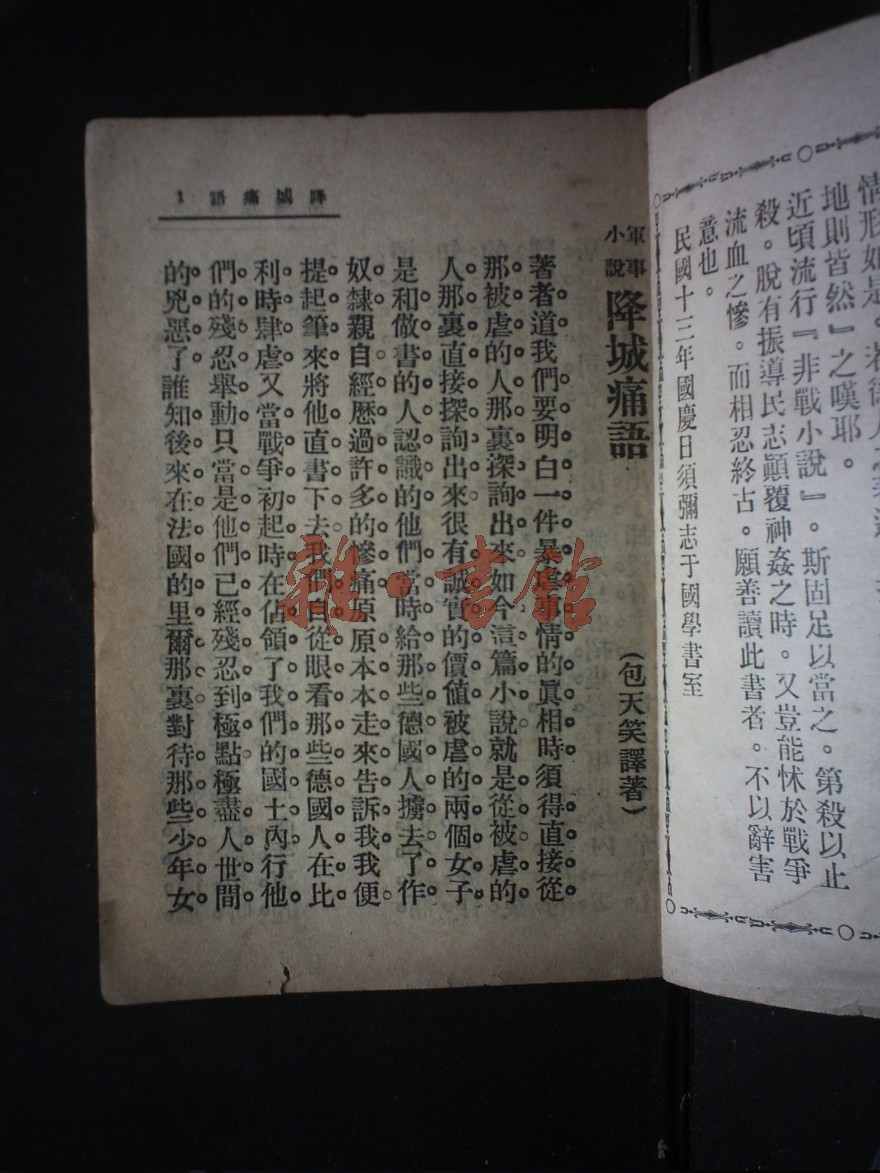 情形如是。若
地則皆然』之嘆耶。
近頃流行『非戰小說』。斯固足以當之。第殺以止
殺。脫有振導民志顚覆神姦之時。又豈能怵於戰爭
流血之慘。而相忍終古。願善讀此書者。不以辭害
意也。
民國十三年國慶日須彌志于國學書室
降城痛語 1
軍事小說 降城痛語
(包天笑譯著)
著者道我們要明白一件暴虐事情的眞相時須得直接從
那被虐的人那裏探詢出來如今這篇小說就是從被虐的
人那裏直接探詢出來很有誠實的價値被虐的兩個女子
是和做書的人認識的他們當時給那些德國人擄去了作
奴隸親自經歷過許多的慘痛原原本本走來告訴我我便
提起筆來將他直書下去我們自從眼看那些德國人在比
利時肆虐又當戰爭初起時在佔領了我們的國土內行他
們的殘忍舉動只當是他們已經殘忍到極點極盡人世間
的兇惡了誰知後來在法國的里爾那裏對待那些少年女
雜·書館